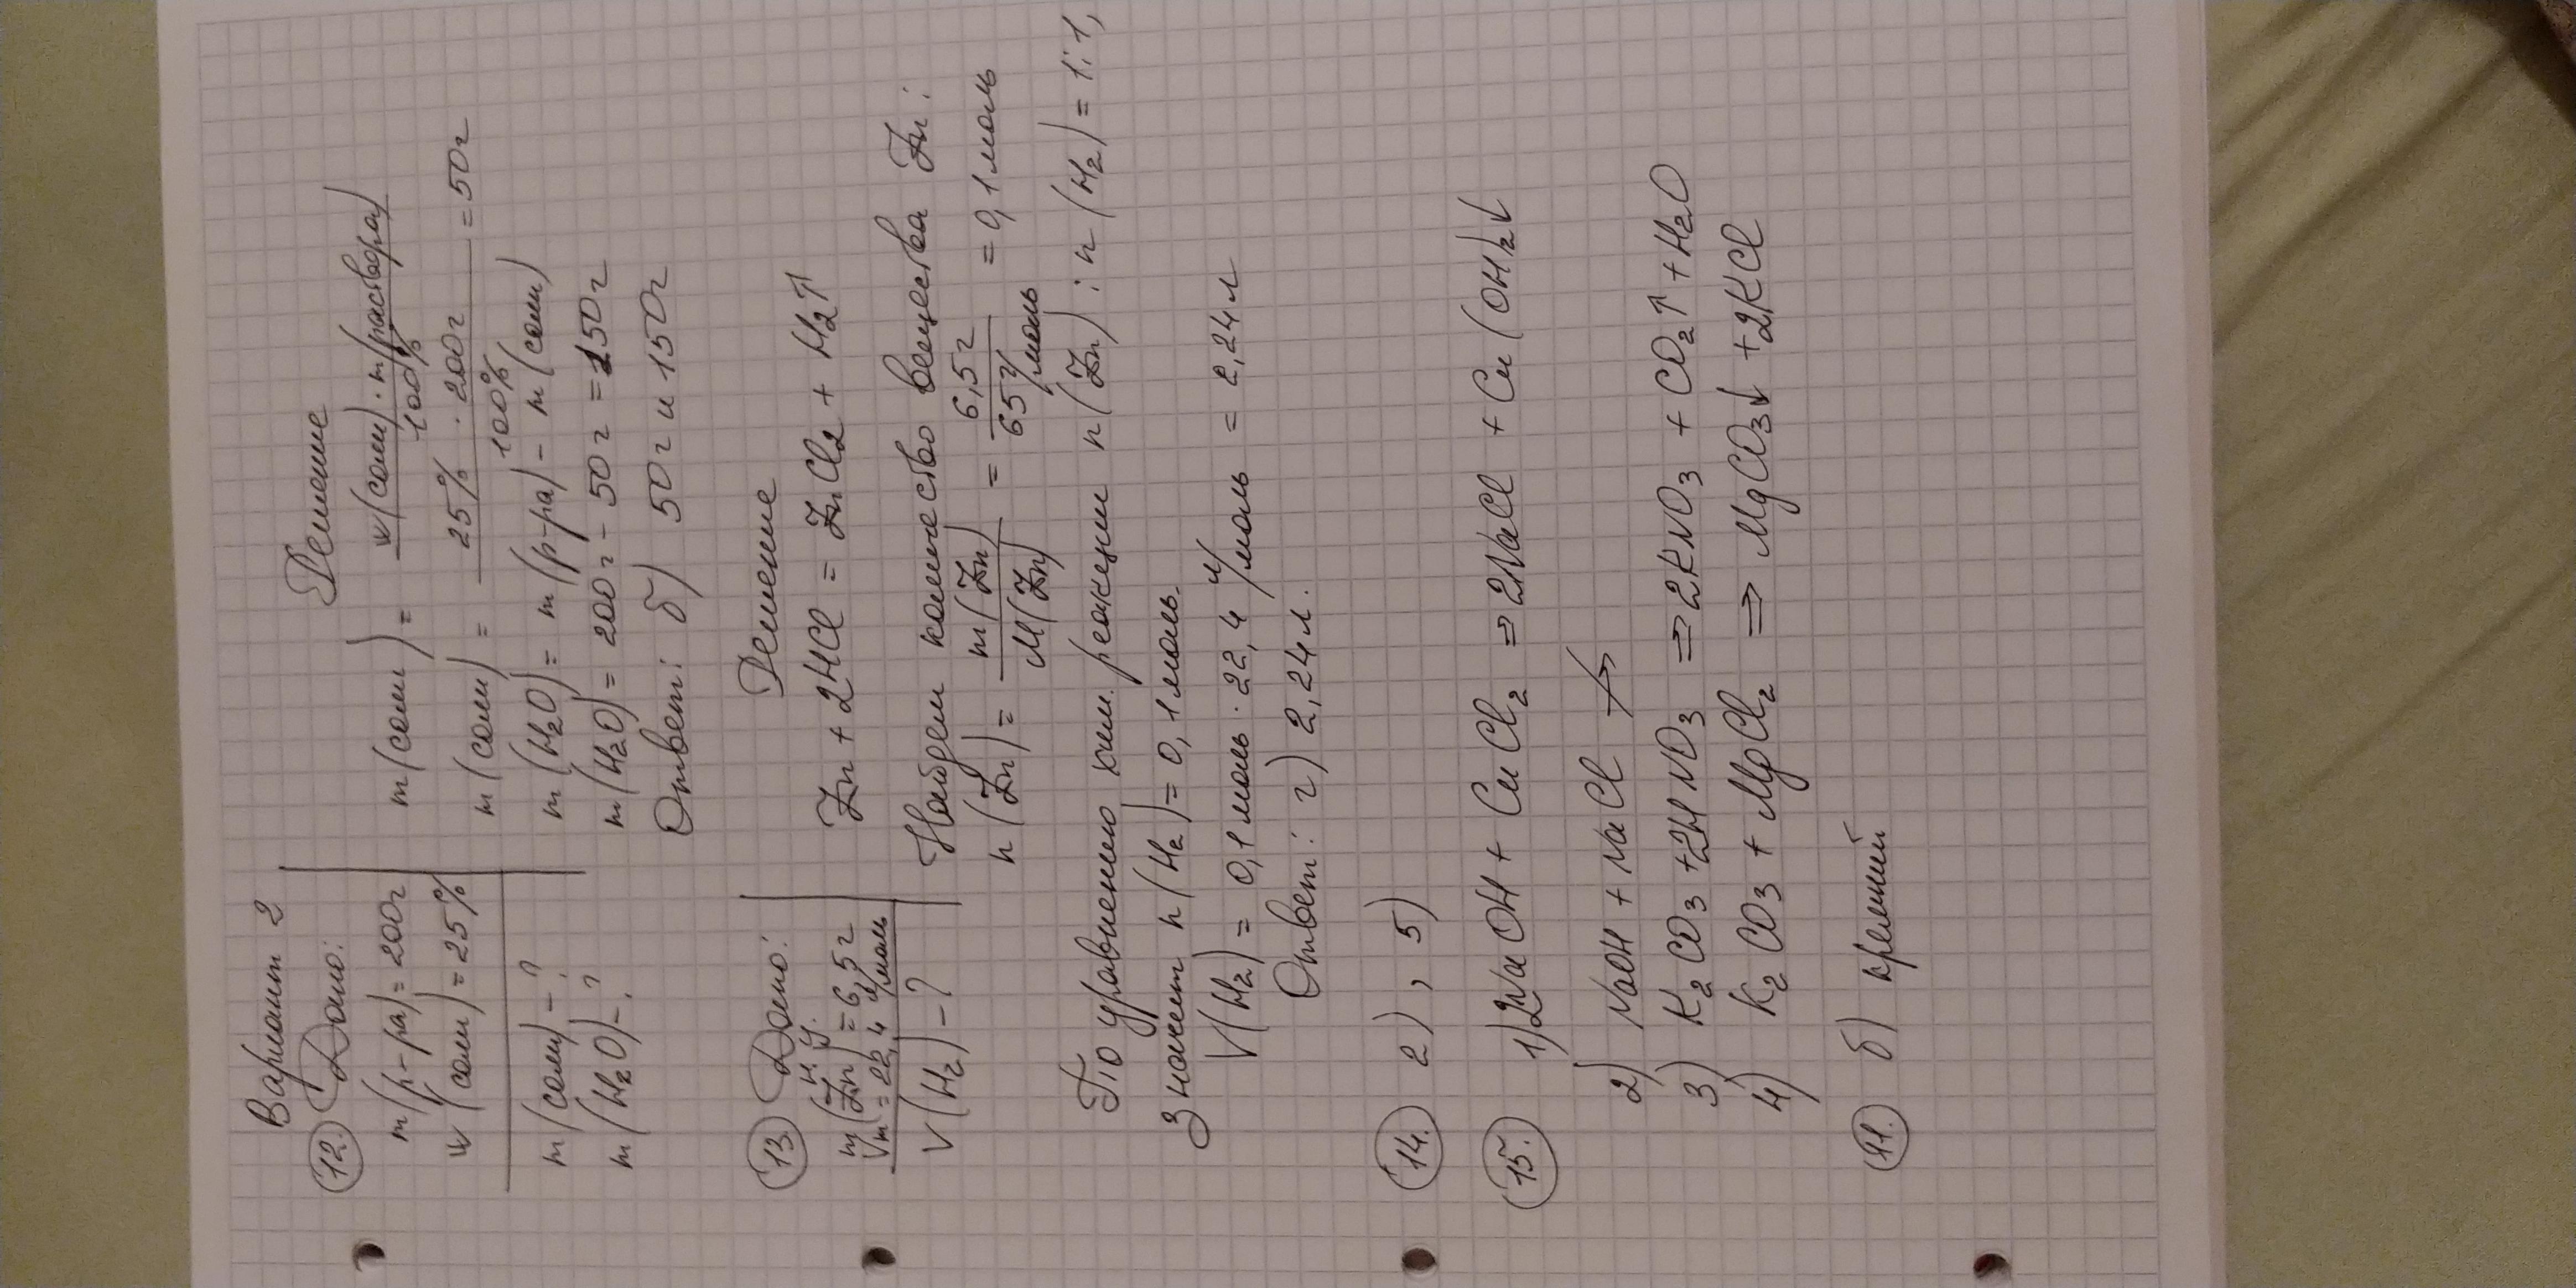 Вариант 2
12. Дано:
m(р-ра) = 200г
w(соли) = 25%
m(соли) - ?
m(H₂O) - ?
Решение
m(соли) = w(соли) · m(раствора) / 100%
m(соли) = 25% · 200г / 100% = 50г
m(H₂O) = m(р-ра) - m(соли)
m(H₂O) = 200г - 50г = 150г
Ответ: б) 50г и 150г
13. Дано:
н.у.
m(Zn) = 6,5г
Vm = 22,4 л/моль
V(H₂) - ?
Решение
Zn + 2HCl = ZnCl₂ + H₂↑
Найдем количество вещества Zn:
n(Zn) = m(Zn) / M(Zn) = 6,5г / 65 г/моль = 0,1 моль
По уравнению хим. реакции n(Zn) : n(H₂) = 1:1,
значит n(H₂) = 0,1 моль.
V(H₂) = 0,1 моль · 22,4 л/моль = 2,24 л
Ответ: г) 2,24 л.
14. 2), 5)
15. 1) 2NaOH + CuCl₂ ⇒ 2NaCl + Cu(OH)₂↓
2) NaOH + NaCl ↛
3) K₂CO₃ + 2HNO₃ ⇒ 2KNO₃ + CO₂↑ + H₂O
4) K₂CO₃ + MgCl₂ ⇒ MgCO₃↓ + 2KCl
11. б) кремний